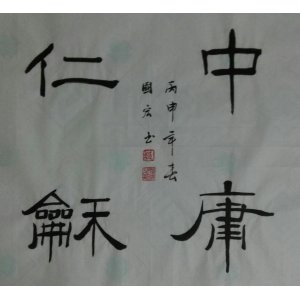 中庸
仁龢
丙申年春
國宏书